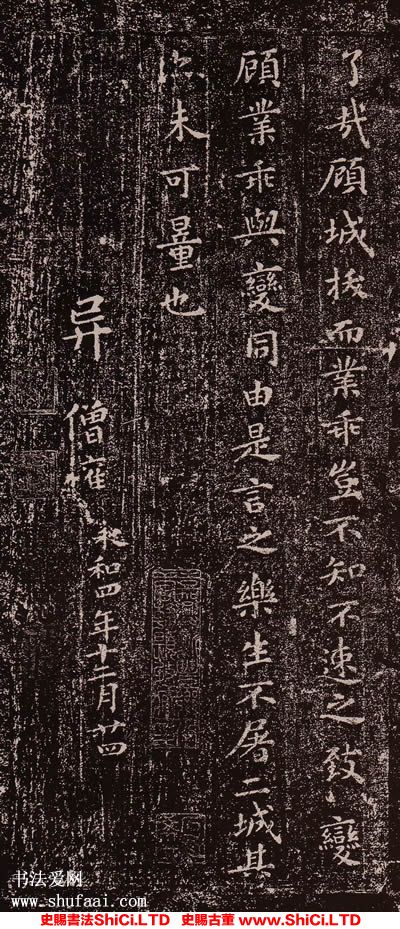 了哉顾城拔而業乖豈不知不速之致變
顾業乖與變同由是言之樂生不屠二城其
㳂未可量也
异
僧權
永和四年十二月廿四
书法爱网
www.shufaai.com
史賜書法ShiCi.LTD 史賜古董 www.ShiCi.LTD